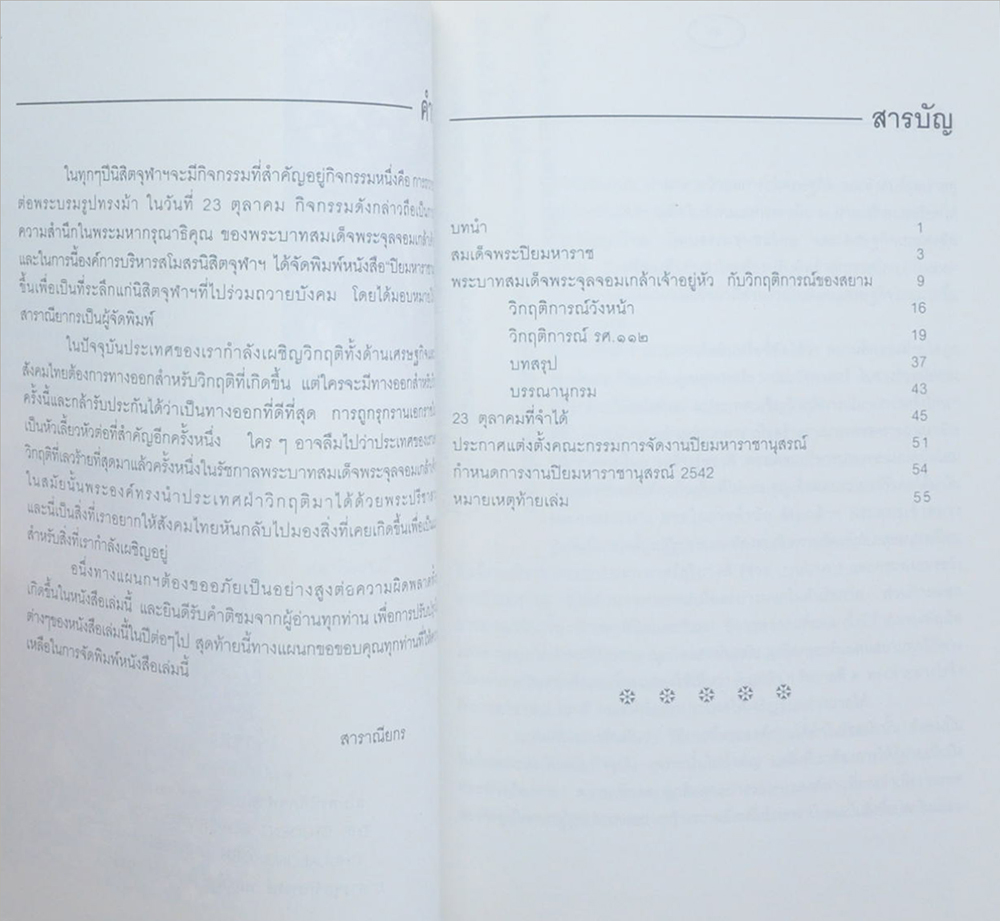 คำ
ในทุกๆปีนิสิตจุฬาฯจะมีกิจกรรมที่สำคัญอยู่กิจกรรมหนึ่งคือ
ต่อพระบรมรูปทรงม้า ในวันที่ 23 ตุลาคม กิจกรรมดังกล่าวถือเป็น
ความสำนึกในพระมหากรุณาธิคุณ ของพระบาทสมเด็จพระจุลจอมเกล้า
และในการนี้องค์การบริหารสโมสรนิสิตจุฬาฯ ได้จัดพิมพ์หนังสือ"ปิยมหาราช
ขึ้นเพื่อเป็นที่ระลึกแก่นิสิตจุฬาฯที่ไปร่วมถวายบังคม โดยได้มอบหมาย
สาราณียากรเป็นผู้จัดพิมพ์
ในปัจจุบันประเทศของเรากำลังเผชิญวิกฤติทั้งด้านเศรษฐกิจ
สังคมไทยต้องการทางออกสำหรับวิกฤติที่เกิดขึ้น แต่ใครจะมีทางออกสำหรับ
ครั้งนี้และกล้ารับประกันได้ว่าเป็นทางออกที่ดีที่สุด การถูกรุกราน
เป็นหัวเลี้ยวหัวต่อที่สำคัญอีกครั้งหนึ่ง ใคร ๆ อาจลืมไปว่าประเทศของ
วิกฤติที่เลวร้ายที่สุดมาแล้วครั้งหนึ่งในรัชกาลพระบาทสมเด็จพระจุลจอมเกล้า
ในสมัยนั้นพระองค์ทรงนำประเทศฝ่าวิกฤติมาได้ด้วยพระปรีชา
และนี่เป็นสิ่งที่เราอยากให้สังคมไทยหันกลับไปมองสิ่งที่เคยเกิดขึ้นเพื่อเป็น
สำหรับสิ่งที่เรากำลังเผชิญอยู่
อนึ่งทางแผนกฯต้องขออภัยเป็นอย่างสูงต่อความผิดพลาด
เกิดขึ้นในหนังสือเล่มนี้ และยินดีรับคำติชมจากผู้อ่านทุกท่าน เพื่อการปรับปรุง
ต่างๆของหนังสือเล่มนี้ในปีต่อๆไป สุดท้ายนี้ทางแผนกขอขอบคุณทุกท่านที่
เหลือในการจัดพิมพ์หนังสือเล่มนี้
สาราณียกร
สารบัญ
บทนำ 1
สมเด็จพระปิยมหาราช 3
พระบาทสมเด็จพระจุลจอมเกล้าเจ้าอยู่หัว กับวิกฤติการณ์ของสยาม 9
วิกฤติการณ์วังหน้า 16
วิกฤติการณ์ รศ.๑๑๒ 19
บทสรุป 37
บรรณานุกรม 43
23 ตุลาคมที่จำได้ 45
ประกาศแต่งตั้งคณะกรรมการจัดงานปิยมหาราชานุสรณ์ 51
กำหนดการงานปิยมหาราชานุสรณ์ 2542 54
หมายเหตุท้ายเล่ม 55